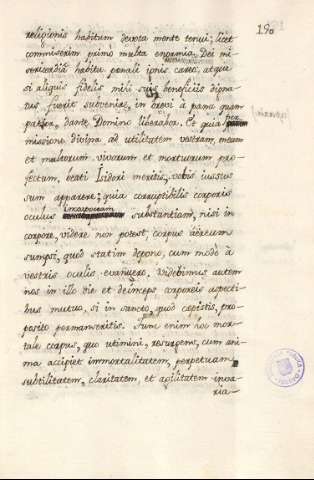 190
religionis habitum devota mente tenui; licet
commiserim primò multa enormia, Dei mi-
sericordiâ habitu penali ignis careo; atque
nostram,
si aliquis fidelis mihi suis beneficiis digna-
tus fuerit subvenire, in brevi à pœna quam
patior, dante Domino liberabor. Et quia per-
missione divina ad utilitatem vestram, meam
et multorum vivorum et mortuorum pro-
fectum, beati Isidori meritis, vobis iussus
sum apparere; quia corruptibilis corporis
oculus substantiam, nisi in
corpore, videre non potest, corpus aëreum
sumpsi, quod statim depono, cum modo à
vestris oculis evanuero. Videbimus autem
nos in illo die et deinceps corporeis aspecti-
bus mutuo, si in sancto, quod cepistis, pro-
posito permanseritis. Nunc enim hoc mor-
tale corpus, quo utimini, resurgens, cum ani-
ma accipiet immortalitatem, perpetuam
subtilitatem, claritatem, et agilitatem inva-
ria-